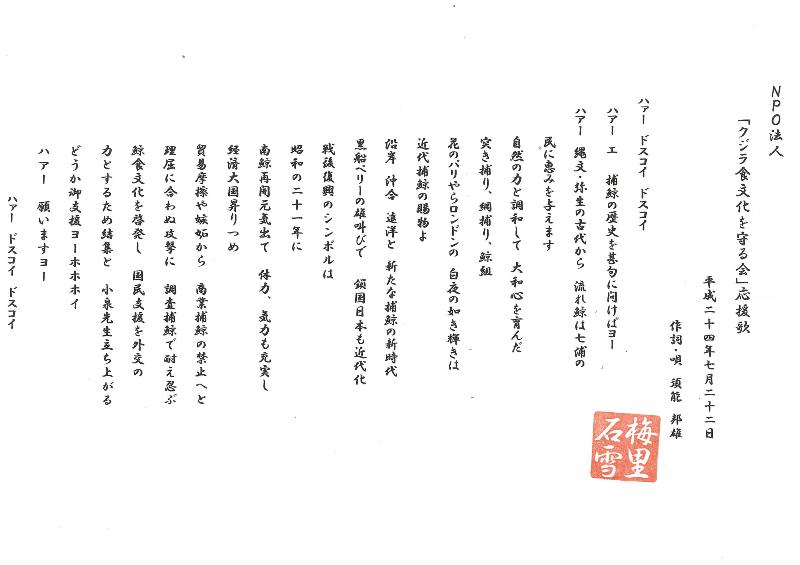 NPO法人
「クジラ食文化を守る会」応援歌
平成二十四年七月二十二日
作詞・唄　須能　邦雄
梅里
石雪
ハァー　ドスコイ　ドスコイ
ハアー　エ　捕鯨の歴史を甚句に問けばヨー
ハアー　縄文・弥生の古代から　流れ鯨は七浦の
民に恵みを与えます
自然の力と調和して　大和心を育んだ
突き捕り、網捕り、鯨組
花のパリやらロンドンの　白夜の如き輝きは
近代捕鯨の賜物よ
沿岸　沖合　遠洋と　新たな捕鯨の新時代
黒船ペリーの雄叫びで　鎖国日本も近代化
戦後復興のシンボルは
昭和の二十一年に
南鯨再開元気出て　体力、気力も充実し
経済大国昇りつめ
貿易摩擦や嫉妬から　商業捕鯨の禁止へと
理屈に合わぬ攻撃に　調査捕鯨で耐え忍ぶ
鯨食文化を啓発し　国民支援を外交の
力とするため結集と　小泉先生立ち上がる
どうか御支援ヨーホホホイ
ハアー　願いますヨー
ハァー　ドスコイ　ドスコイ